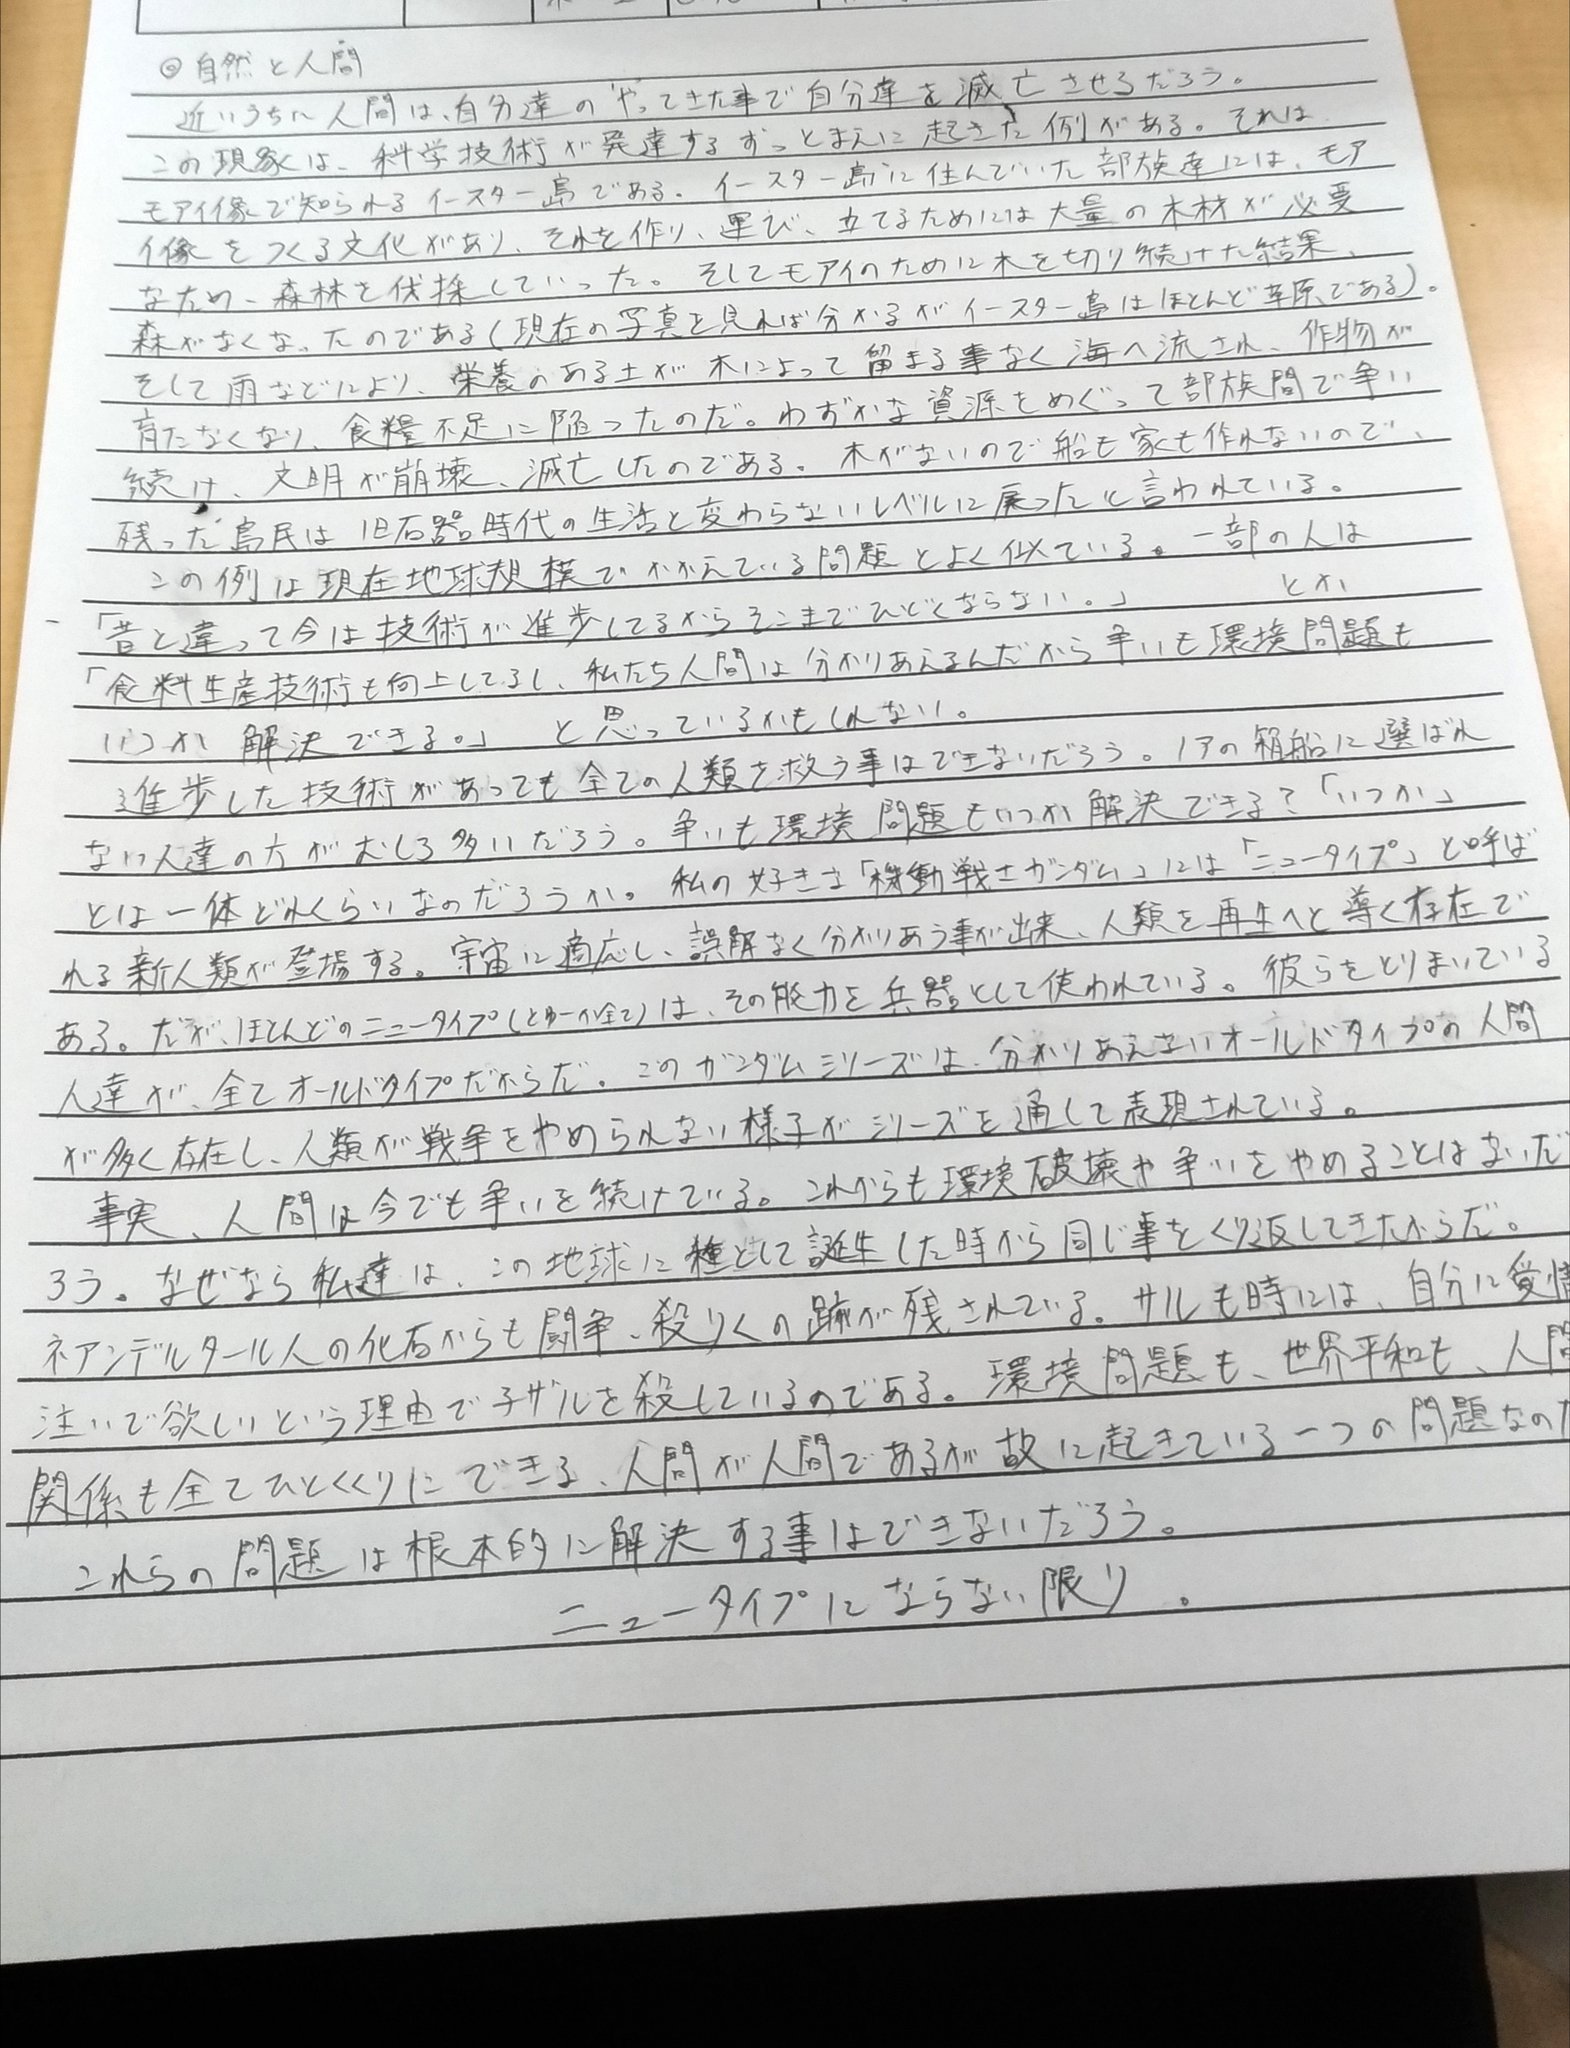 ◎自然と人間
近いうちに人間は、自分達のやってきた事で自分達を滅亡させるだろう。
この現象は、科学技術が発達するずっとまえに起きた例がある。それは
モアイ像で知られるイースター島である。イースター島に住んでいた部族達には、モア
イ像をつくる文化があり、それを作り、運び、立てるためには大量の木材が必要
なため、森林を伐採していった。そしてモアイのために木を切り続けた結果、
森がなくなったのである(現在の写真を見れば分かるがイースター島はほとんど草原である)。
そして雨などにより、栄養のある土が木によって留まる事なく海へ流され、作物が
育たなくなり、食糧不足に陥ったのだ。わずかな資源をめぐって部族間で争い
続け、文明が崩壊、滅亡したのである。木がないので船も家も作れないので、
残った島民は旧石器時代の生活と変わらないレベルに戻ったと言われている。
この例は現在地球規模でかかえている問題とよく似ている。一部の人は
「昔と違って今は技術が進歩してるからそこまでひどくならない。」とか
「食料生産技術も向上してるし、私たち人間は分かりあえるんだから争いも環境問題も
いつか解決できる。」と思っているかもしれない。
進歩した技術があっても全ての人類を救う事はできないだろう。ノアの箱船に選ばれ
ない人達の方がむしろ多いだろう。争いも環境問題もいつか解決できる?「いつか」
とは一体どれくらいなのだろうか。私の好きな「機動戦士ガンダム」には「ニュータイプ」と呼ば
れる新人類が登場する。宇宙に適応し、誤解なく分かりあう事が出来、人類を再生へと導く存在で
ある。だが、ほとんどのニュータイプ(とゆーか全て)は、その能力を兵器として使われている。彼らをとりまいている
人達が、全てオールドタイプだからだ。このガンダムシリーズは、分かりあえないオールドタイプの人間
が多く存在し、人類が戦争をやめられない様子がシリーズを通して表現されている。
事実、人間は今でも争いを続けている。これからも環境破壊や争いをやめることはないだ
ろう。なぜなら私達は、この地球に種として誕生した時から同じ事をくり返してきたからだ。
ネアンデルタール人の化石からも闘争、殺りくの跡が残されている。サルも時には、自分に愛情
注いで欲しいという理由で子ザルを殺しているのである。環境問題も、世界平和も、人間
関係も全てひとくくりにできる、人間が人間であるが故に起きている一つの問題なのだ
これらの問題は根本的に解決する事はできないだろう。
ニュータイプにならない限り。